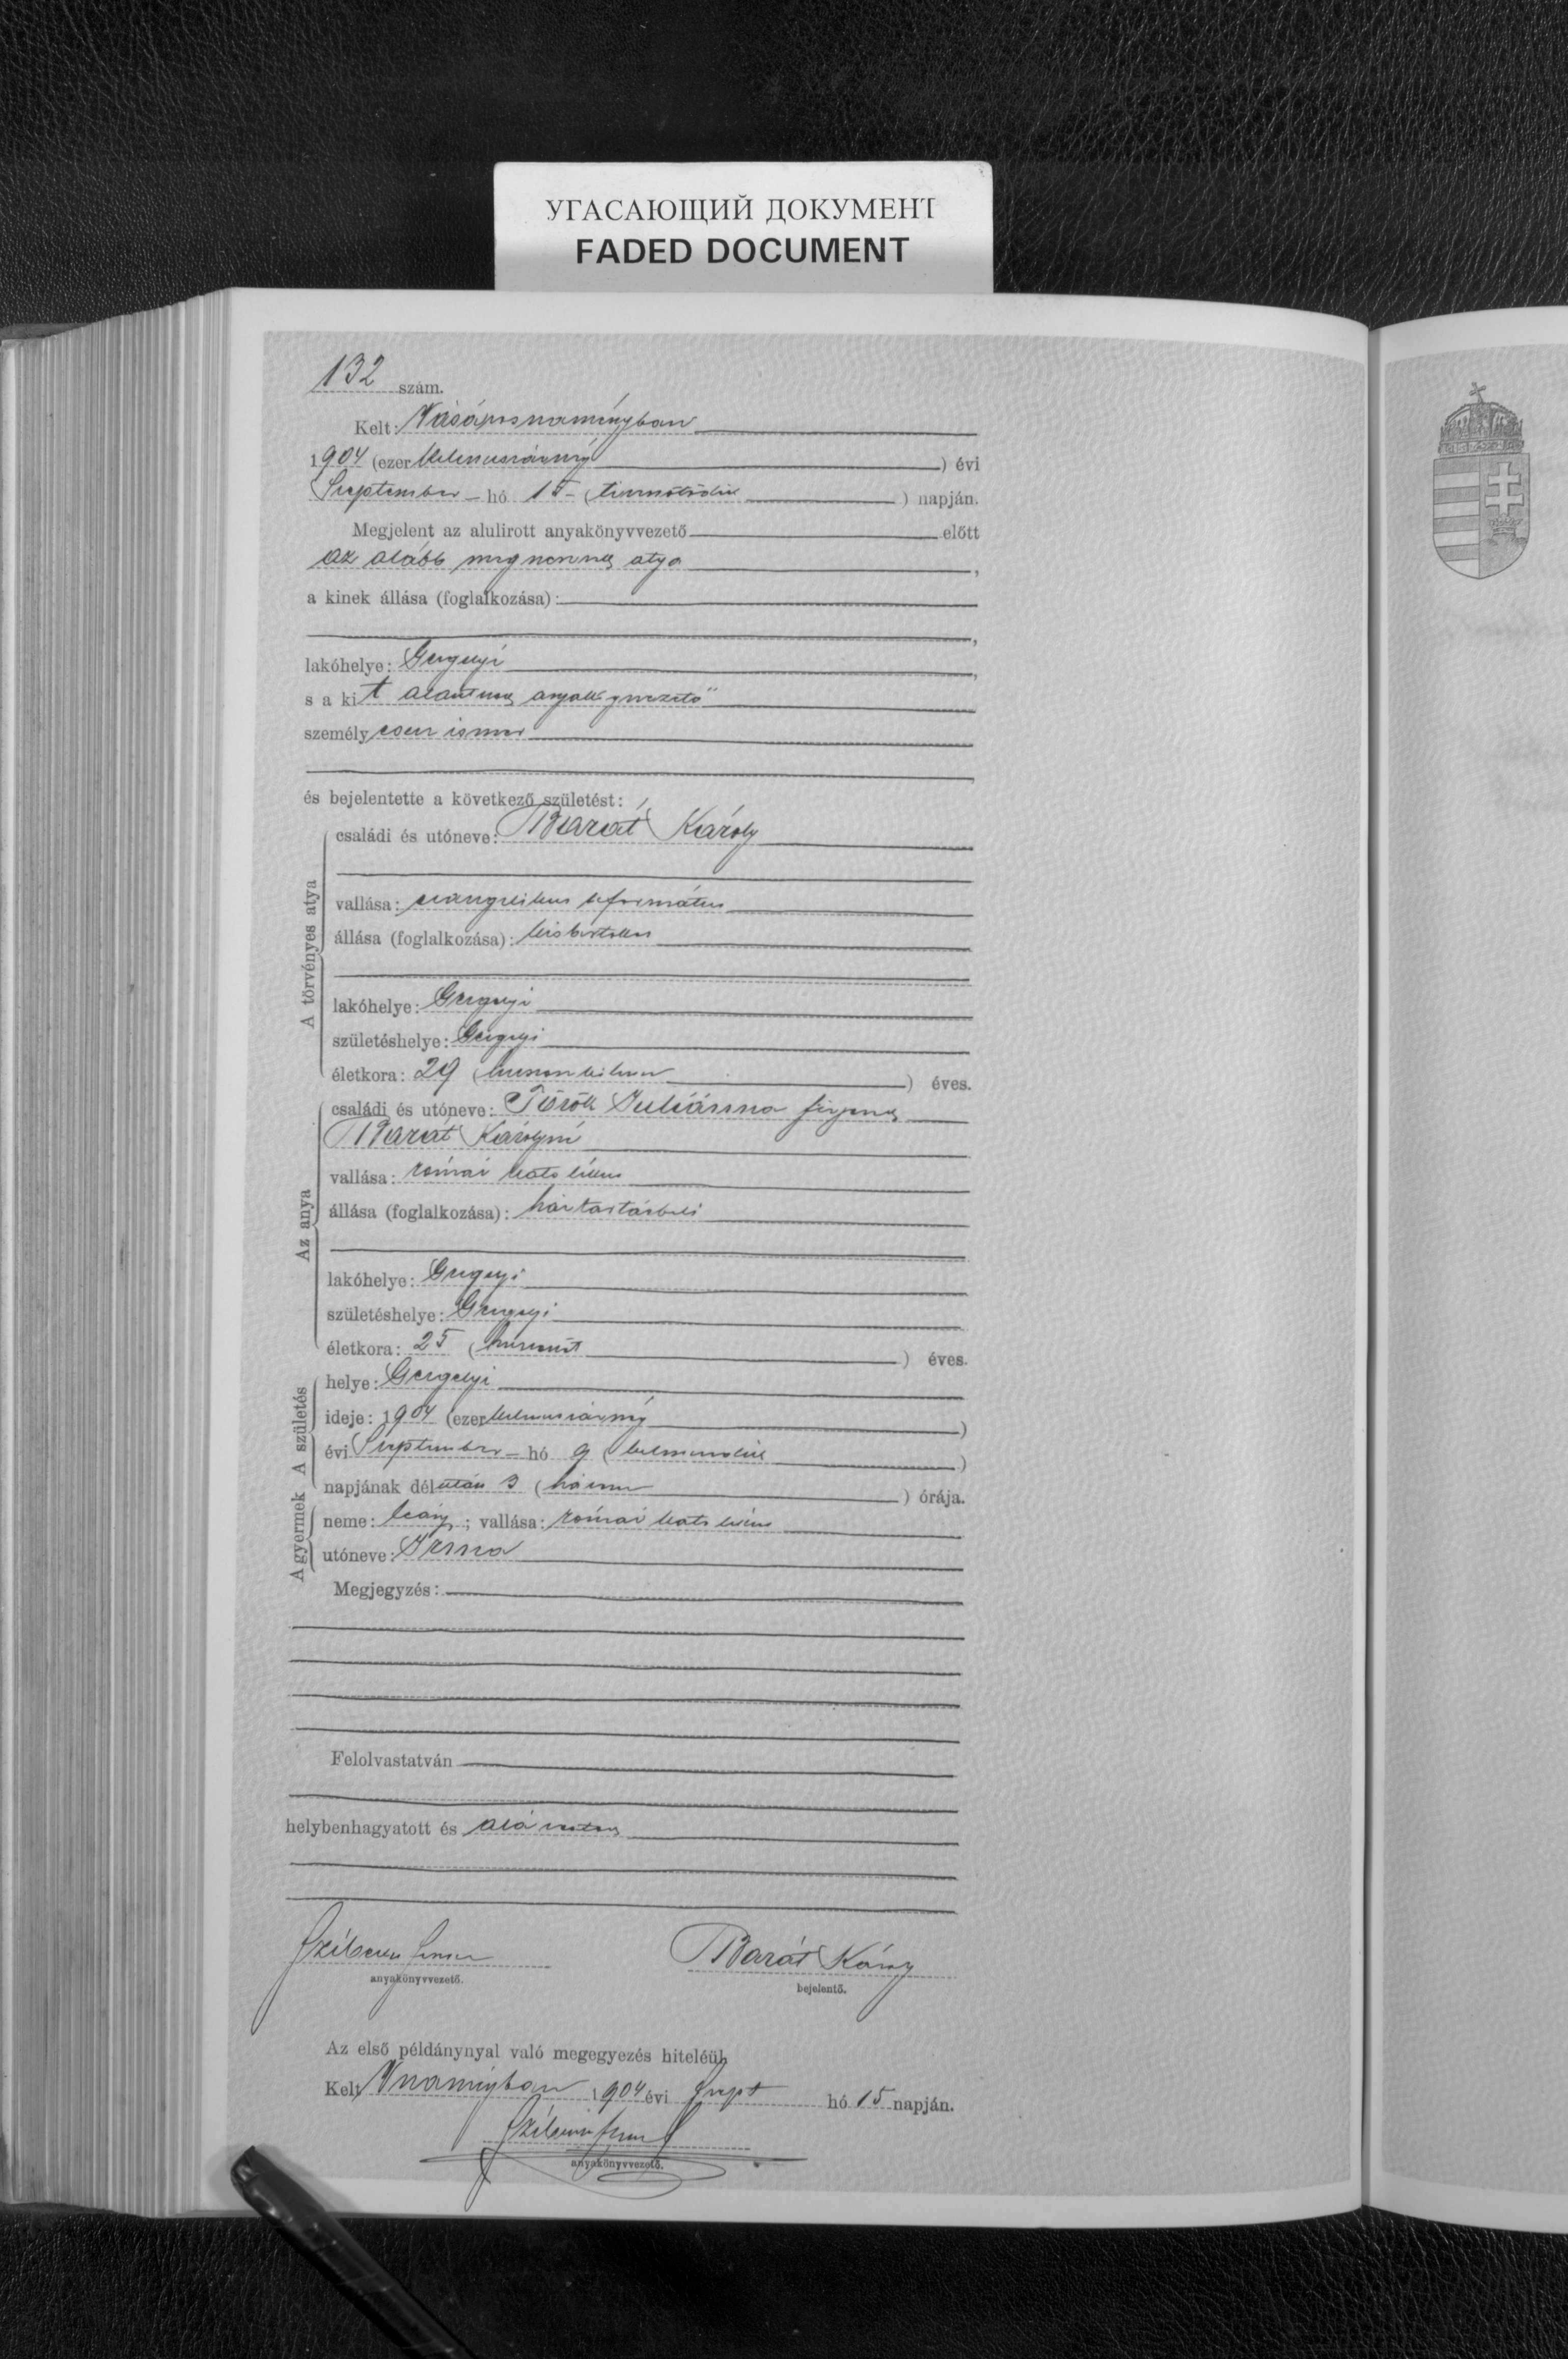 УГАСАЮЩИЙ ДОКУМЕНТ
FADED DOCUMENT
132 szám.
Kelt: Vásárosnaményban
1904 (ezer kilenczszáznégy) évi
Szeptember hó 15 (tizenötödik) napján.
Megjelent az alulirott anyakönyvvezető előtt
az alább megnevezett atya,
a kinek állása (foglalkozása):
lakóhelye: Gergelyi,
s a kit anyakönyvvezető
személyesen ismer
és bejelentette a következő születést:
A törvényes atya
családi és utóneve: Barát Károly
vallása: evangelikus református
állása (foglalkozása): kisbirtokos
lakóhelye: Gergelyi
születéshelye: Gergelyi
életkora: 29 (huszonkilencz) éves.
Az anya
családi és utóneve: Török Juliánna férjezett
Barát Károlyné
vallása: római katolikus
állása (foglalkozása): háztartásbeli
lakóhelye: Gergelyi
születéshelye: Gergelyi
életkora: 25 (huszonöt) éves.
A születés
helye: Gergelyi
ideje: 1904 (ezer kilenczszáznégy)
évi Szeptember hó 9 (kilenczedik)
napjának délután 3 (három) órája.
A gyermek
neme: leány; vallása: római katolikus
utóneve: Irma
Megjegyzés:
Felolvastatván
helybenhagyatott és aláiratott
Barát Károly
anyakönyvvezető.
bejelentő.
Az első példánynyal való megegyezés hiteléül
Kelt Vnaményban 1904 évi Szept hó 15 napján.
anyakönyvvezető.